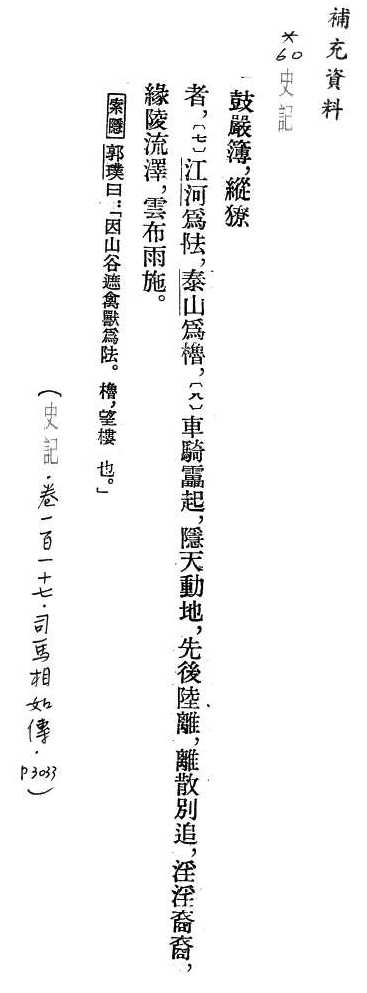 補充資料
*60史記
鼓嚴簿，縱獠
者，〔七〕江河爲阹，泰山爲櫓，〔八〕車騎靁起，隱天動地，先後陸離，離散別追，淫淫裔裔，
緣陵流澤，雲布雨施。
索隱 郭璞曰：「因山谷遮禽獸爲阹。櫓，望樓也。」
（史記．卷一百一十七．司馬相如傳．P3033）